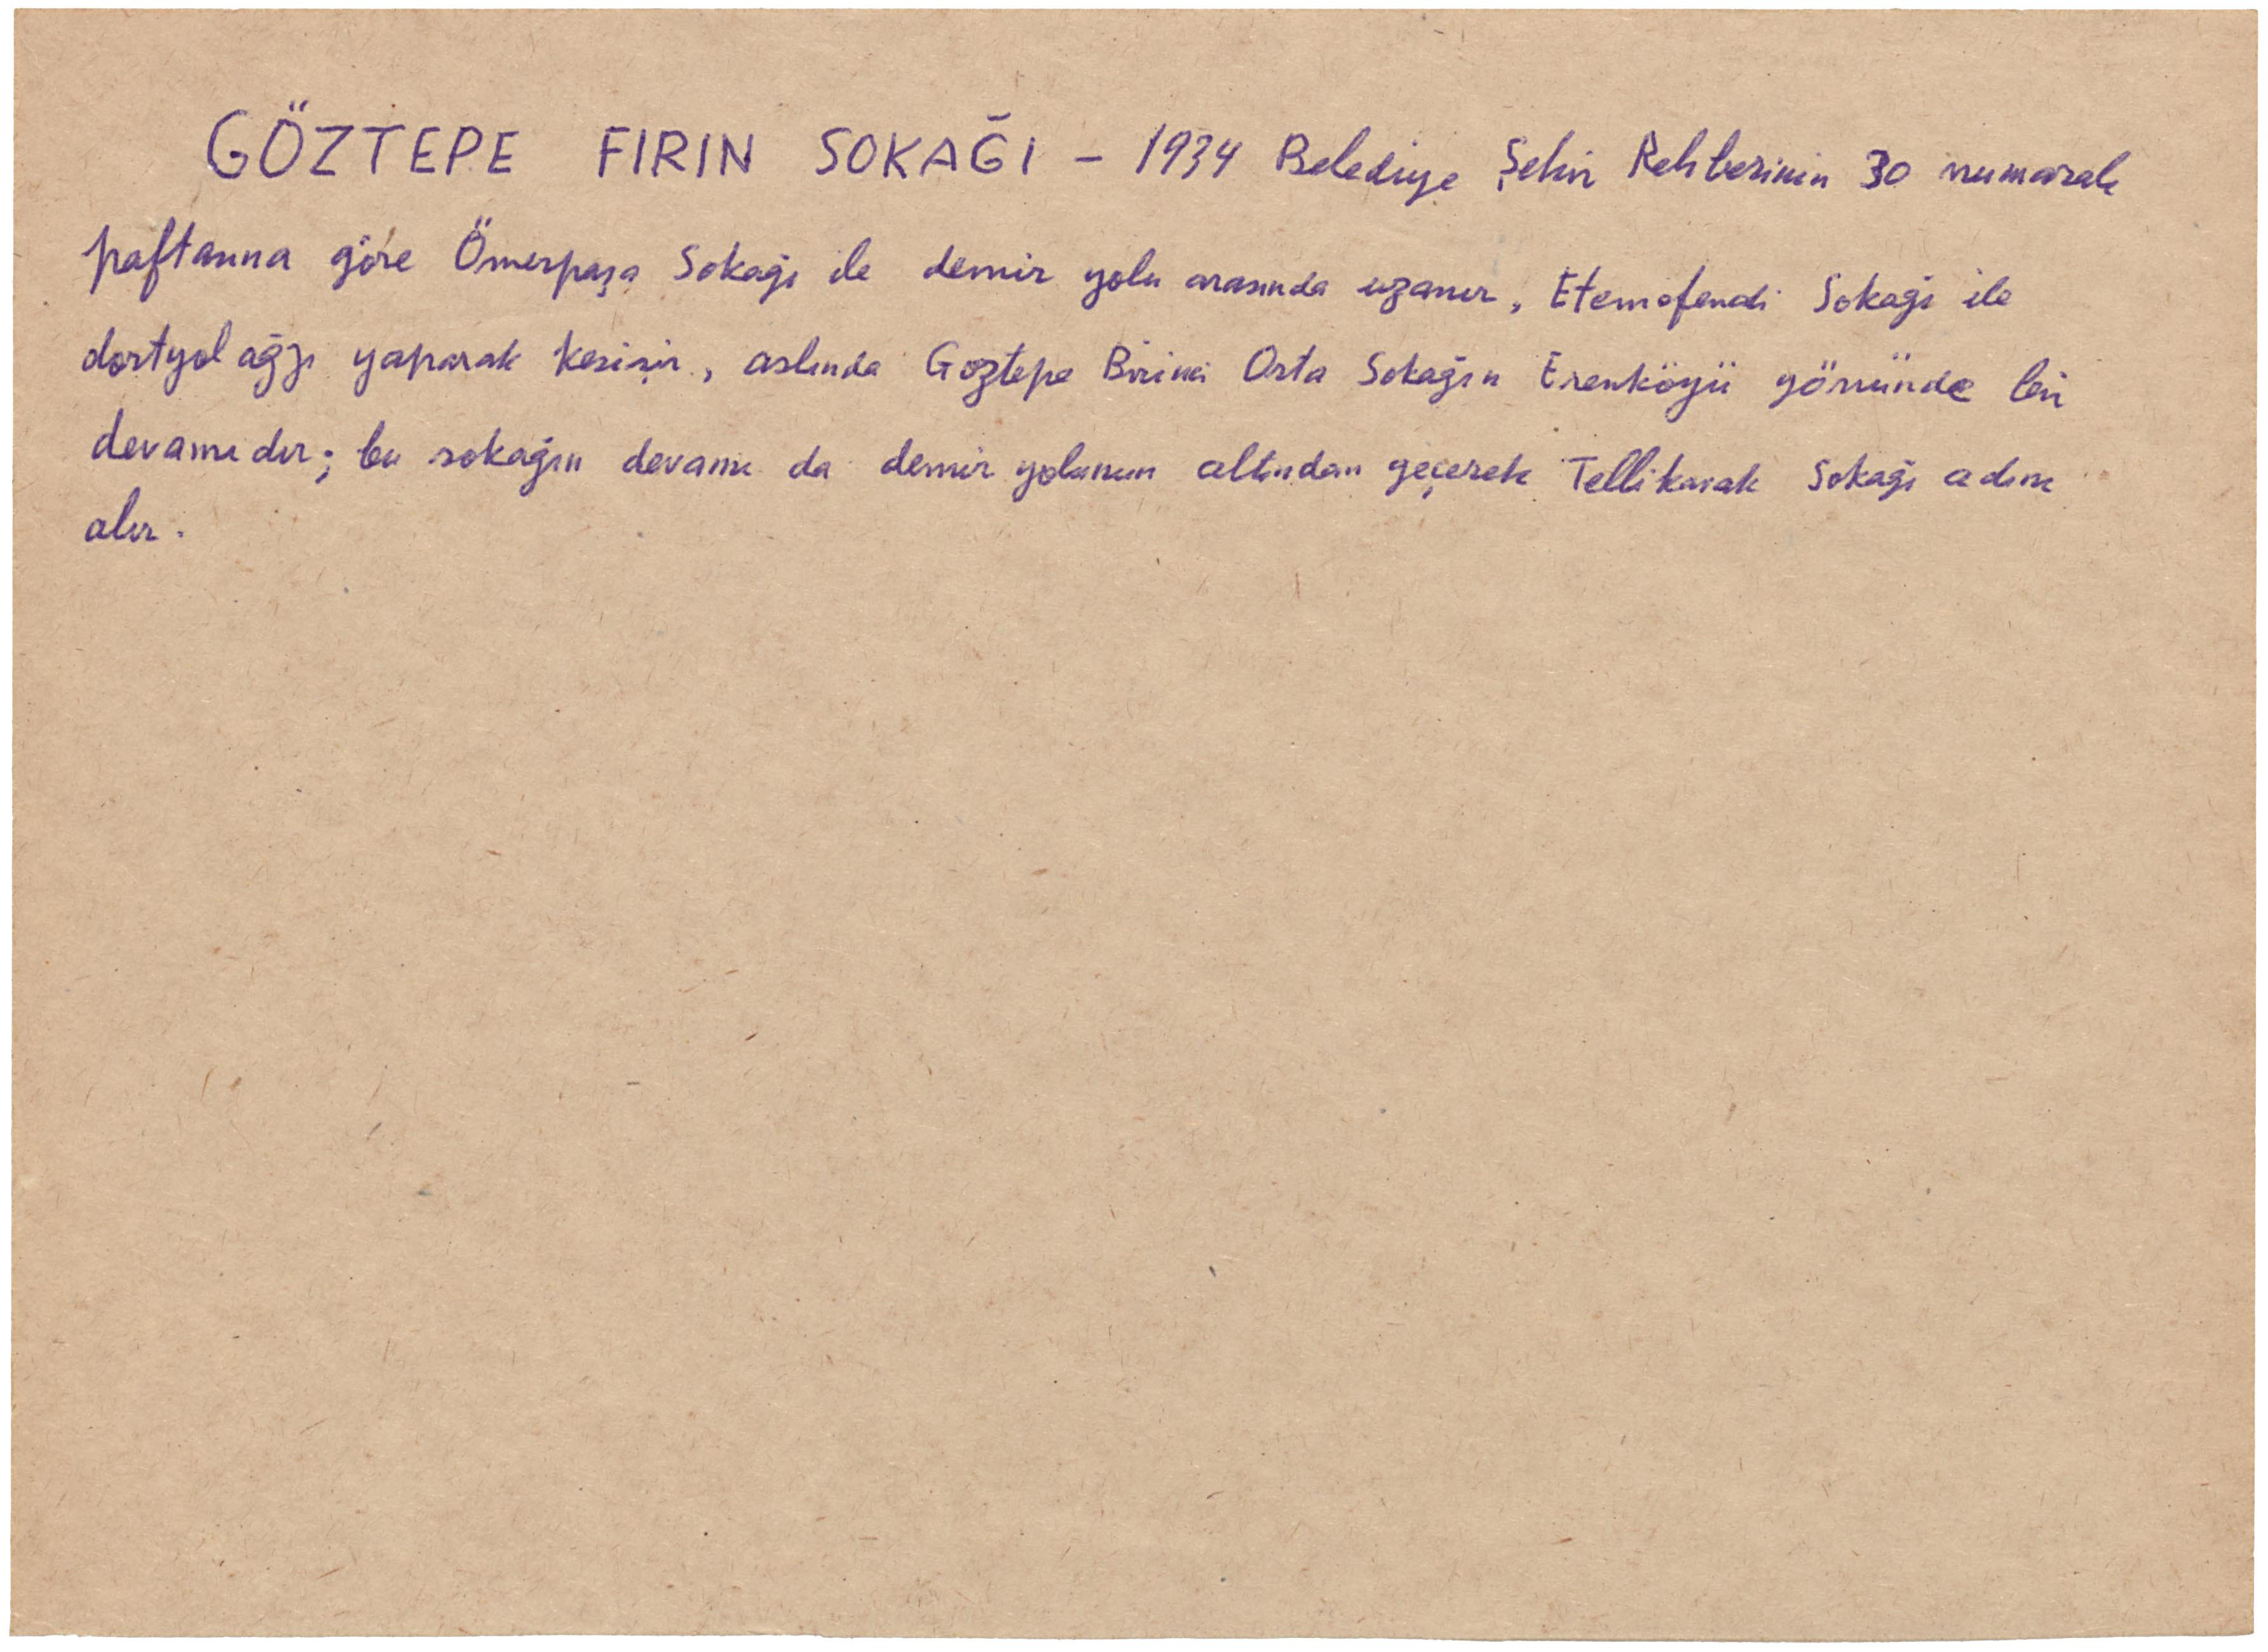 GÖZTEPE FIRIN SOKAĞI – 1934 Belediye Şehir Rehberinin 30 numaralı
paftasına göre Ömerpaşa Sokağı ile demir yolu arasında uzanır, Etemefendi Sokağı ile
dörtyol ağzı yaparak kesişir, aslında Göztepe Birinci Orta Sokağın Erenköyü yönünde bir
devamıdır; bu sokağın devamı da demir yolunun altından geçerek Tellikavak Sokağı adını
alır.